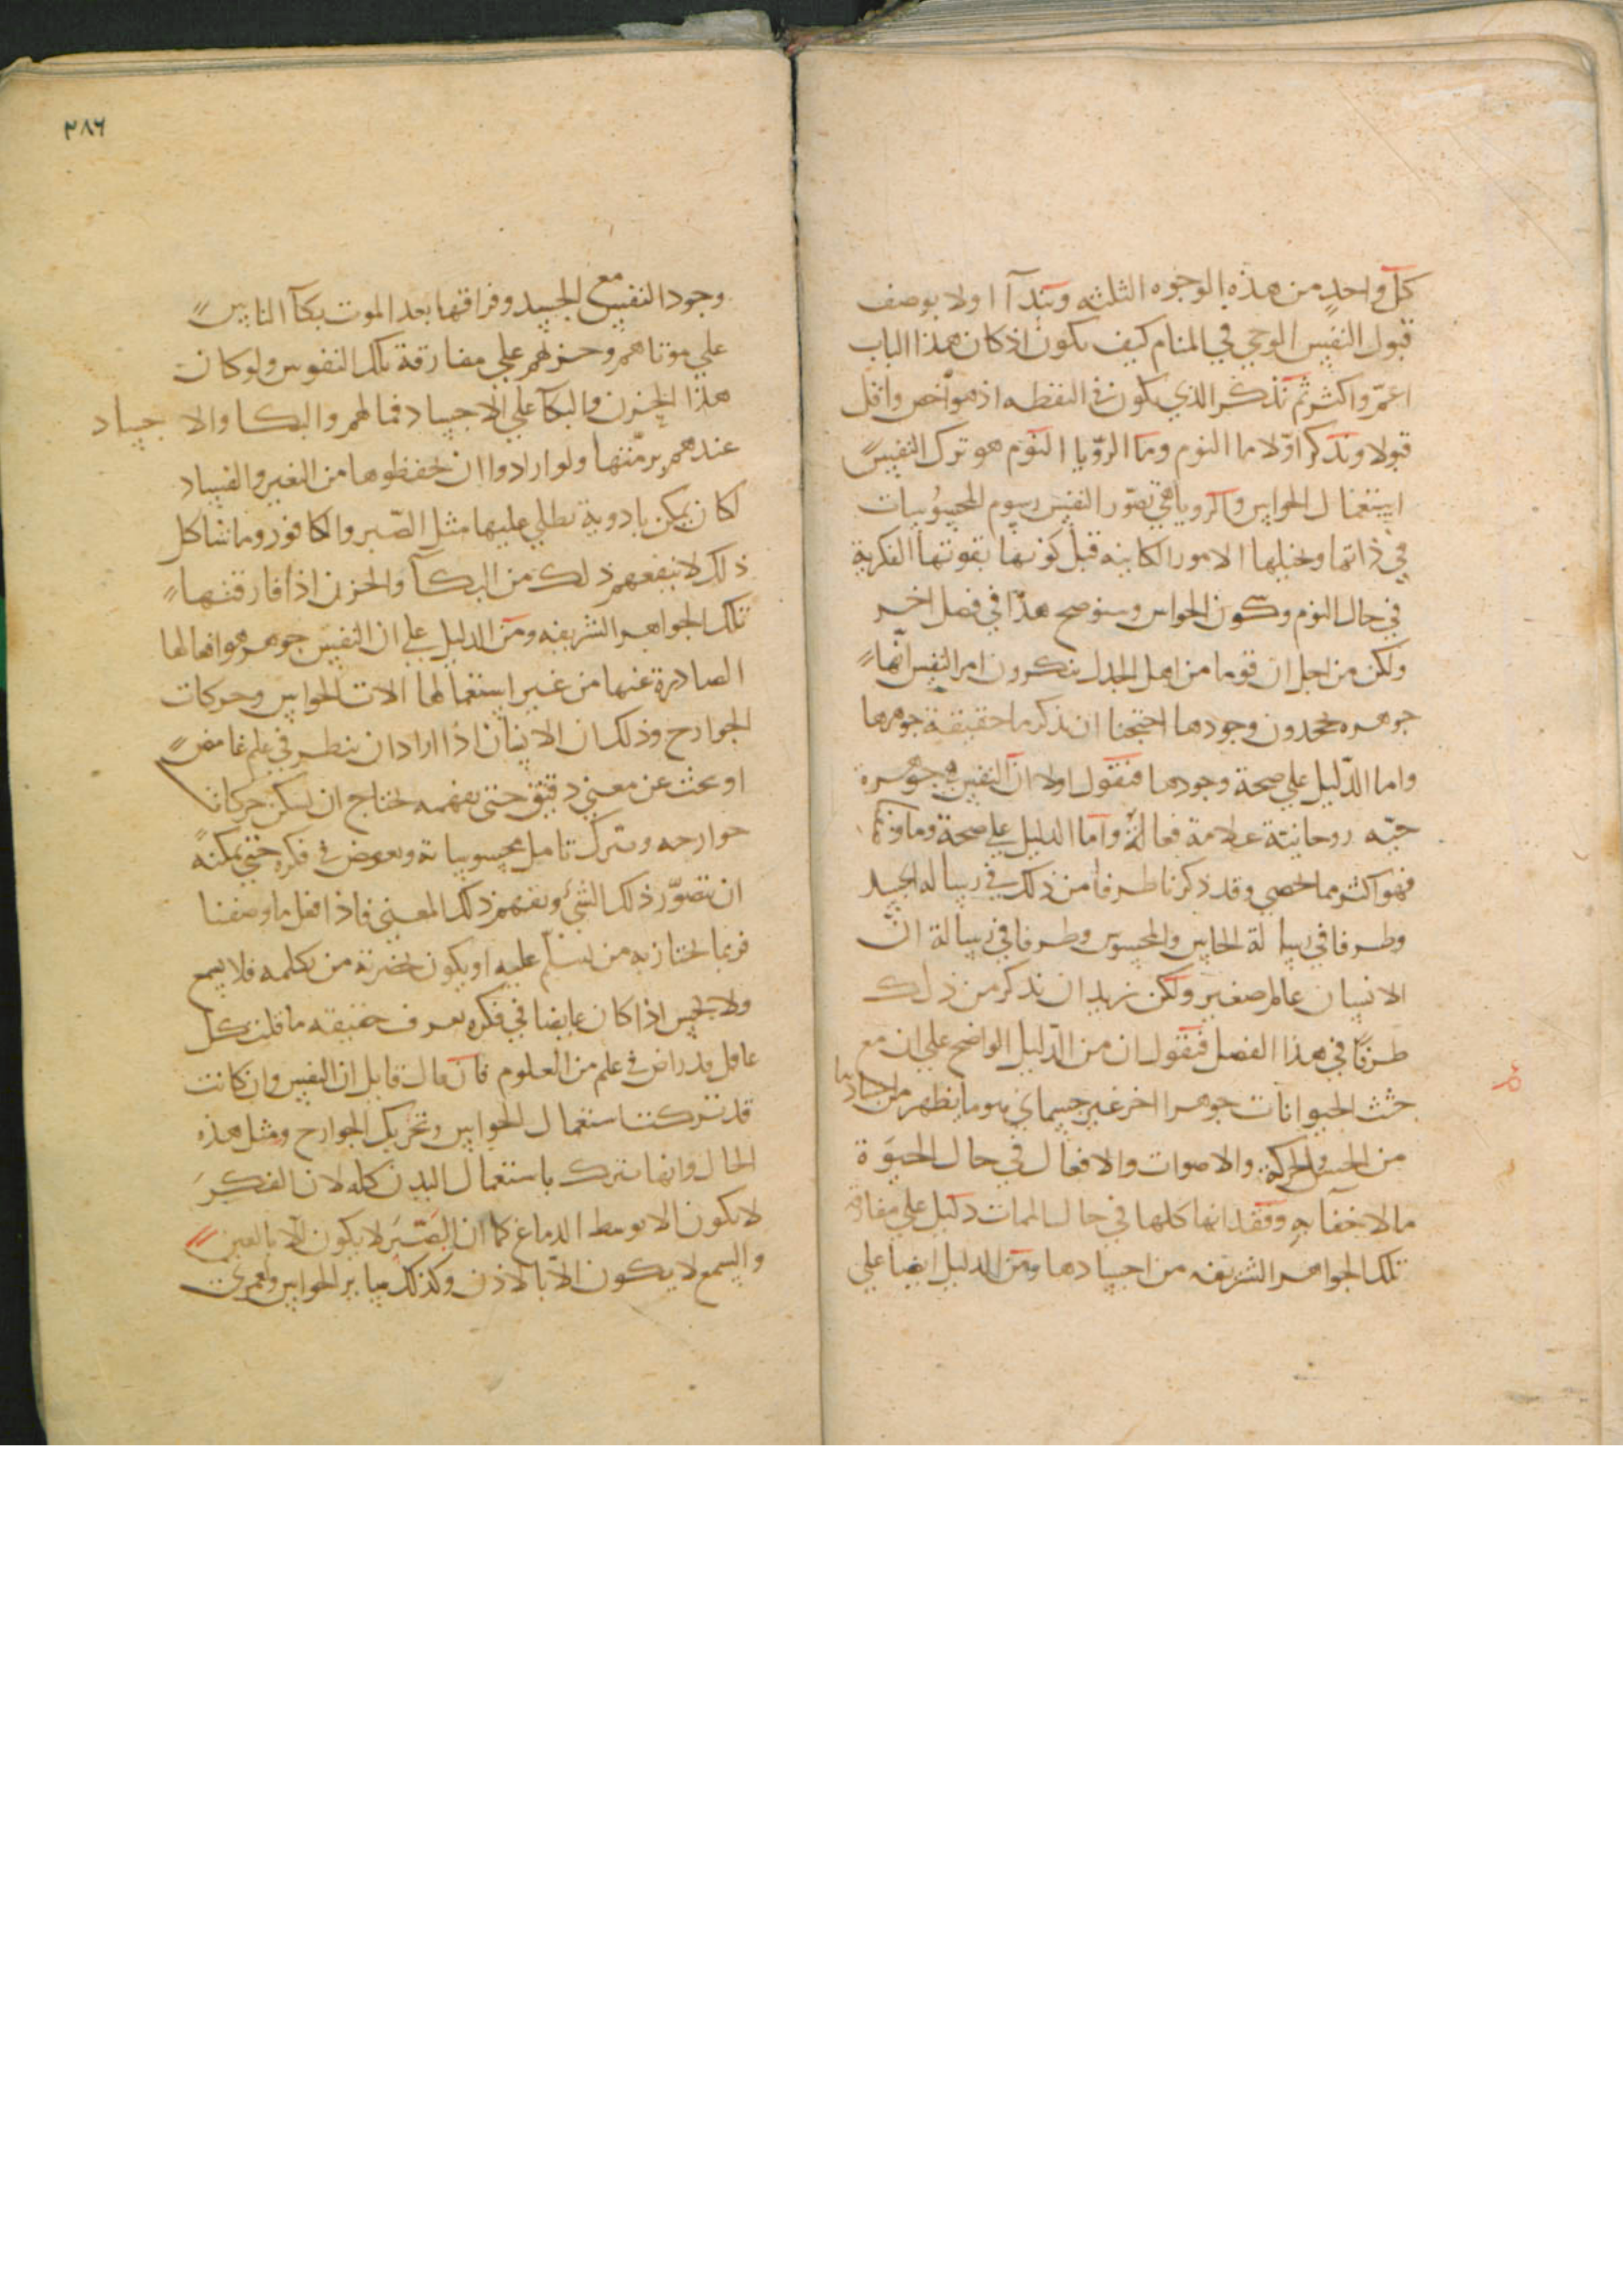 كل واحد من هذه الوجوه الثلثه ونبدأ اولا بوصف
قبول النفس الوحي في المنام كيف يكون اذ كان هذا الباب
اعمّ واكثر ثم نذكر الذي يكون في اليقظه اذ هو اخص واقل
قبولا ونذكر اوّلا ما النوم وما الرّويا النوم هو ترك النفس
استعمال الحواس والرويا هي تصّور النفس رسوم المحسوسات
في ذاتها وتخيلها الامور الكاينه قبل كونها بقوتها الفكرية
في حال النوم وسكون الحواس وسنوضح هذا في فصل اخر
ولكن من اجل ان قوما من اهل الجدل ينكرون امر النفس انّها
جوهره يجحدون وجودها احتجنا ان نذكر ما حقيقية جوهرها
واما الدّليل علي صحة وجودها فنقول اولا انّ النفس هي جوهرة
حيّه روحانيّة علامة فعالة واما الدليل علي صحة وما
فهو اكثر مما يحصي وقد ذكرنا طرفا من ذلك في رساله الجسد
وطرفا في رسالة الحاس والمحسوس وطرفا في رسالة انّ
الانسان عالم صغير ولكن نريد ان نذكر من ذلك
طرفًا في هذا الفصل فنقول ان من الدّليل الواضح علي ان مع
جثث الحيوانات جوهرا اخر غير جسماني هو ما يظهر من اجسادها
من الحس والحركة والاصوات والافعال في حال الحيوة
مالا خفآ به وفقدانها كلها في حال الممات دليل علي مفارقة
تلك الجواهر الشريفه من اجسادها ومن الدليل ايضا علي
٣٨٦
وجود النفس مع الجسد وفراقها بعد الموت بكآ الناس
علي موتاهم وحزنهم علي مفارقة تلك النفوس ولو كان
هذا الحزن والبكآ علي الاجساد فما لهم والبكا والاجساد
عندهم برمّتها ولو ارادوا ان يحفظوها من التغير والفساد
لكان يمكن بادوية تطلي عليها مثل الصّبر والكافور وما شاكل
ذلك لا ينفعهم ذلك من البكآ والحزن اذا فارقتها
تلك الجواهر الشريفه ومن الدليل علي ان النفس جوهر هو افعالها
الصادرة عنها من غير استعمالها الات الحواس وحركات
الجوارح وذلك ان الانسان اذا اراد ان ينظر في علم غامض
او يحث عن معني دقيق حتي يفهمه يحتاج ان يسكن حركات
جوارحه ويترك تامل محسوساته ويغوص في فكره حتي يمكنه
ان يتصوّر ذلك الشئ ويفهم ذلك المعني فاذا فعل ما وصفنا
فربما يجتاز به من يسلّم عليه او يكون بحضرته من يكلمه فلا يسمع
ولا يحس اذا كان غايصا في فكره يعرف حقيقه ما قلت كل
عاقل قد راض في علم من العلوم فان قال قايل ان النفس وان كانت
قد تركت استعمال الحواس وتحريك الجوارح ومثل هذه
الحال وانها تترك باستعمال البدن كله لان الفكر
لا يكون الا بوسط الدماغ كما ان البصر لا يكون الا بالعين
والسمع لا يكون الاّ بالاذن وكذلك ساير الحواس ولعمري